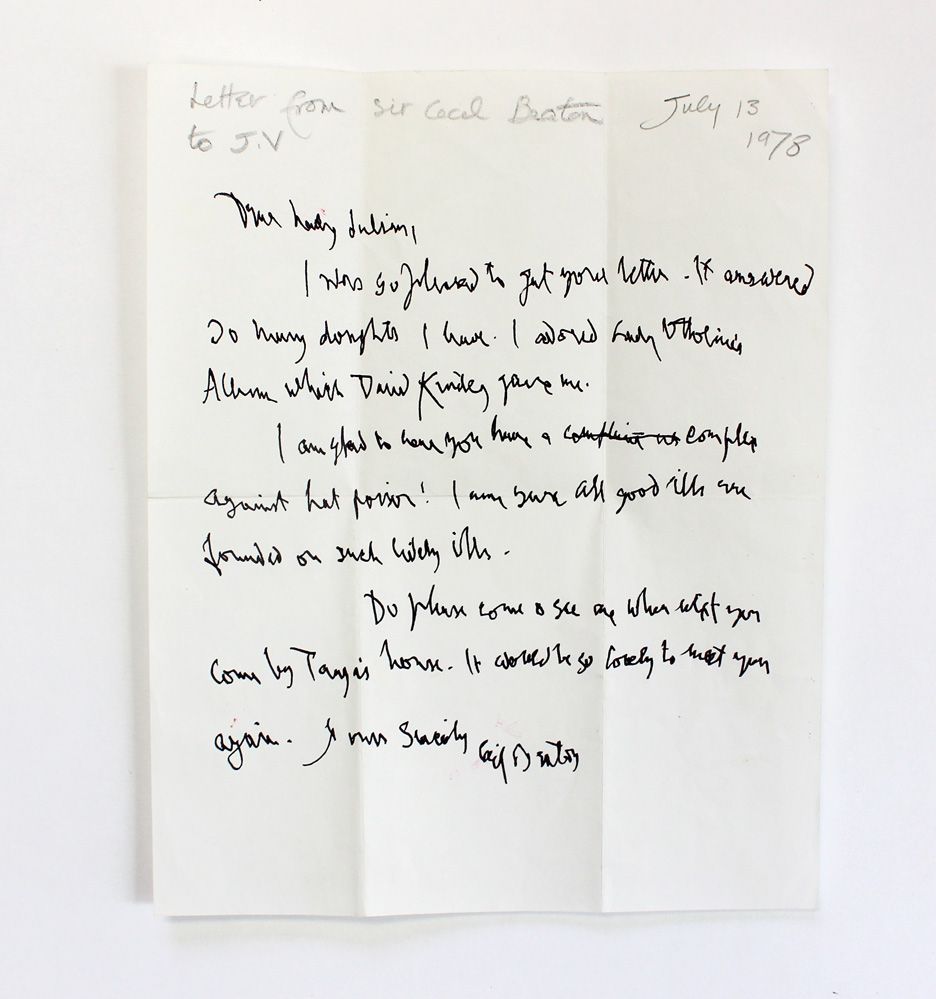 Letter from Sir Cecil Beaton July 13
to J.V 1978
Dear Lady
I was so pleased to get your letter - It answered
So many I have. I adored Lady
Album which David gave me.
I am glad to hear you have a complex
against hat poison! I am sure all good ills are
founded on such ills -
Do please come & see me when next you
come by Tanya's house. It would be so lovely to meet you
again. Yours Sincerely Cecil Beaton